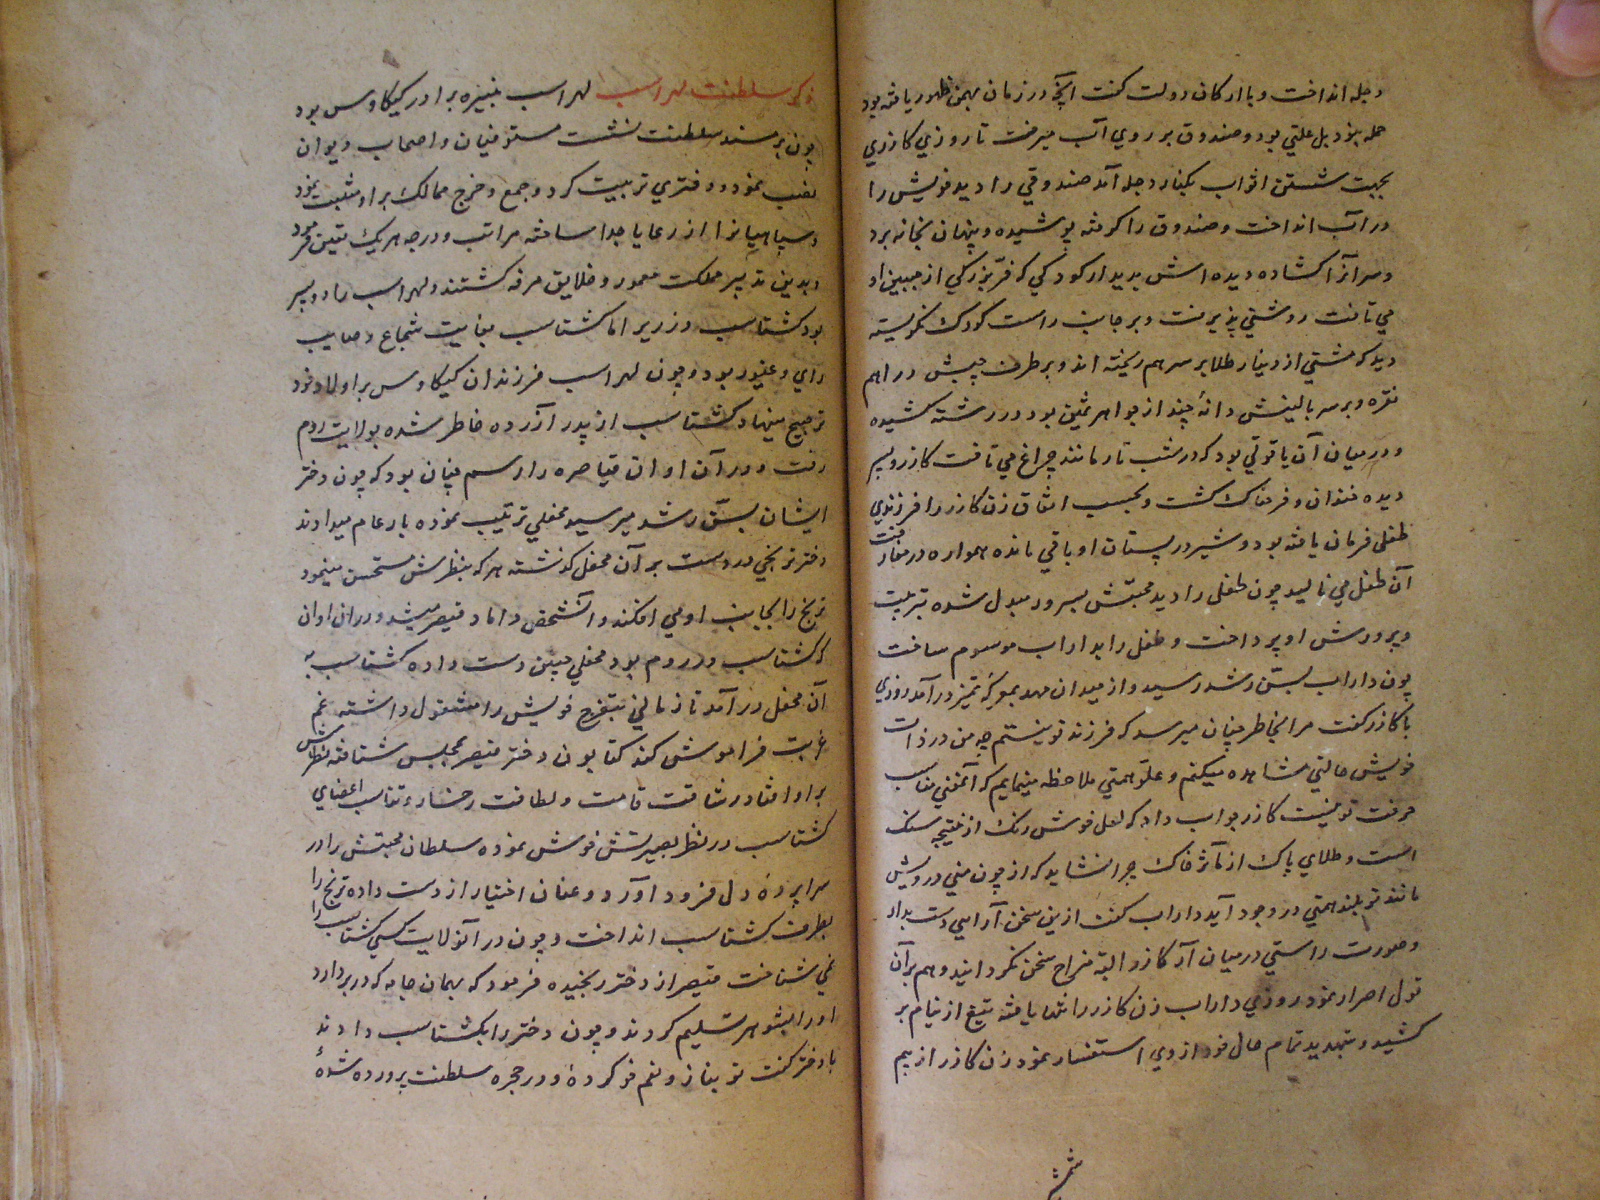 دجله انداخت و با ارکان دولت گفت آنچه در زمان بهمن ظهور یافته بود
حمله بود بل علتی بود و صندوق بر روی آب میرفت تا روزی کازری
بجهت شستن اثواب بکنار دجله آمد صندوقی را دید خویش را
در آب انداخت و صندوق را گرفته پوشیده و پنهان بخانه برد
و سر آنرا کشاده دیده اش بدیدار کودکی که فر بزرکی از جبین او
می تافت روشنی پذیرفت و بر جانب راست کودک نکریسته
دید که مشتی از دینار طلا بر سر هم ریخته اند و بر طرف چپش دراهم
نقره و بر سر بالینش دانهٔ چند از جواهر ثمین بود در رشته کشیده
و در میان آن یاقوتی بود که در شب تار مانند چراغ می تافت کازر و پسر
دیده خندان و فرحناک کشت و بحسب اتفاق زن کازر را فرزندی
طفلی فرمان یافته بود و شیر در پستان او باقی مانده همواره در مفارقت
آن طفل می نالید چون طفلی را دید محبتش بسرور مبدل شده بتربیت
و پرورش او پرداخت و طفل را بداراب موسوم ساخت
چون داراب بسن رشد رسید و از میدان مهد بمعرکه تمیز در آمد روزی
با کازر گفت مرا بخاطر چنان میرسد که فرزند تو نیستم چه من در ذات
خویش حالتی مشاهده میکنم و علو همتی ملاحظه مینمایم که آنمعنی مناسب
حرفت تو نیست کازر جواب داد که لعل خوش رنک از نتیجه سنک
است و طلای پاک از مآثر خاک چرا نشاید که از چون منی درویش
مانند تو بلند همتی در وجود آید داراب گفت ازین سخن آرایی دست بدار
و صورت راستی در میان آر کازر البته منراج سخن نکردانید و هم بر آن
قول اصرار نمود روزی داراب زن کازر را تنها یافته تیغ از نیام بر
کشید و بتهدید تمام حال خود از وی استفسار نمود زن کازر از بیم
ذکر سلطنت لهراسب لهراسب نبیره برادر کیکاوس بود
چون بر مسند سلطنت نشست مستوفیان و اصحاب دیوان
نصب نمود و دفتری تربیت کرد و جمع و خرج ممالک بر او مثبت نمود
و سپاهیانرا از رعایا جدا ساخته مراتب و درجه هر یک تعین فرمود
و بدین تدبیر مملکت معمور و خلایق مرفه کشتند و لهراسب را دو پسر
بود کشتاسب و زریر اما کشتاسب بغایت شجاع و صایب
رای و غیور بود و چون لهراسب فرزندان کیکاوس بر اولاد خود
ترجیح مینهاد کشتاسب از پدر آزرده خاطر شده بولایت روم
رفت و در آن اوان قیاصره را رسم چنان بود که چون دختر
ایشان بسن رشد میرسید محفلی ترتیب نموده بار عام میدادند
دختر ترنجی در دست بر آن محفل گذشته هر که بنظرش مستحسن مینمود
ترنج را بجانب او می افکند و آنشخص داماد قیصر میشد و در ان اوان
که کشتاسب در روم بود محفلی چنین دست داده کشتاسب به
آن محفل در آمد تا زمانی بتفرج خویش را مشغول داشته غم
غربت فراموش کند کتایون دختر قیصر بمجلس شتافته نظرش
بر او افتاد رشاقت قامت و لطافت رخسار و تناسب اعضای
کشتاسب در نظر بصیرتش خوش نموده سلطان محبتش را در
سراپرده دل فرود آورد و عنان اختیار از دست داده ترنج را
بطرف کشتاسب انداخت و چون در آنولایت کسی کشتاسب را
نمی شناخت قیصر از دختر رنجیده فرمود که بهمان جامه که در بر دارد
او را بشوهر تسلیم کردند و چون دختر را بکشتاسب دادند
با دختر گفت تو بناز و نعم خو کردهٔ و در حجره سلطنت پرورده شدهٔ